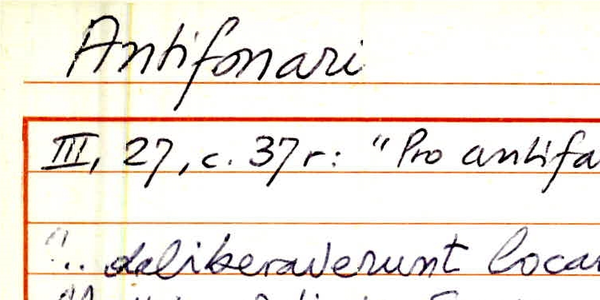 Antifonari
III, 27, c. 37r: "Pro antifa
"... deliberaverunt locar